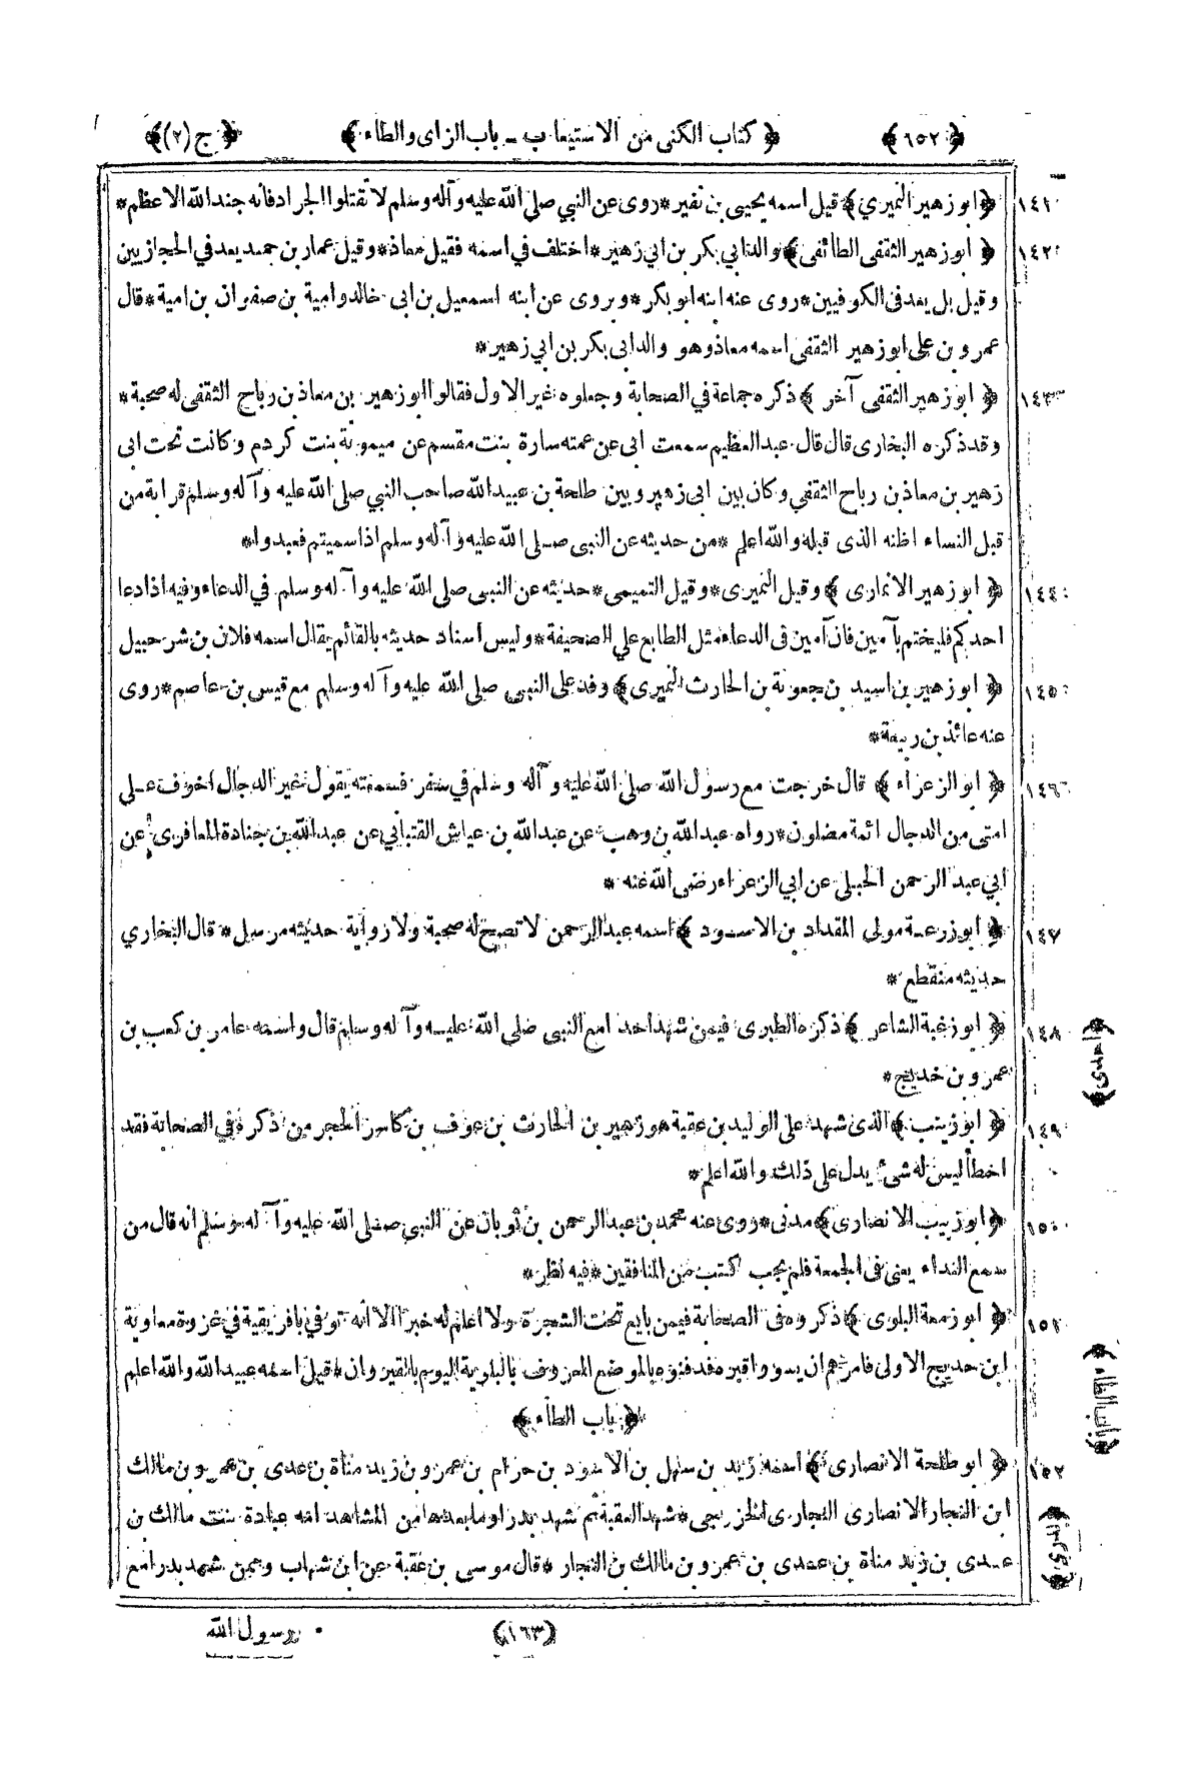 ﴿٦٥٢﴾ ﴿كتاب الكنى من الاستيعاب – باب الزاى والطاء﴾ ﴿ج (٢)﴾
١٤١ ﴿ابو زهير النميري﴾ قيل اسمه يحيى بن نفير * روى عن النبي صلى الله عليه وآله وسلم لا تقتلوا الجراد فانه جند الله الاعظم *
١٤٢ ﴿ابو زهير الثقفى الطائفى﴾ والد ابي بكر بن ابي زهير * اختلف في اسمه فقيل معاذ * وقيل عمار بن حميد يعد في الحجازيين
وقيل بل يعد فى الكوفيين * روى عنه ابنه ابو بكر * ويروى عن ابنه اسمعيل بن ابى خالد وامية بن صفوان بن امية * قال
عمرو بن على ابو زهير الثقفى اسمه معاذ وهو والد ابى بكر بن ابي زهير *
١٤٣ ﴿ابو زهير الثقفى آخر﴾ ذكره جماعة في الصحابة وجعلوه غير الاول فقالوا ابو زهير بن معاذ بن رباح الثقفى له صحبة *
وقد ذكره البخارى قال قال عبد العظيم سمعت ابى عن عمته سارة بنت مقسم عن ميمونة بنت كردم وكانت تحت ابى
زهير بن معاذ بن رباح الثقفي وكان بين ابى زهير وبين طلحة بن عبيد الله صاحب النبي صلى الله عليه وآله وسلم قرابة من
قبل النساء اظنه الذى قبله والله اعلم * من حديثه عن النبى صلى الله عليه وآله وسلم اذا سميتم فعبدوا *
١٤٤ ﴿ابو زهير الانمارى﴾ وقيل النميرى * وقيل التميمى * حديثه عن النبى صلى الله عليه وآله وسلم في الدعاء وفيه اذا دعا
احدكم فليختم بآمين فان آمين فى الدعاء مثل الطابع علي الصحيفة * وليس اسناد حديثه بالقائم يقال اسمه فلان بن شرحبيل
١٤٥ ﴿ابو زهير بن اسيد بن جعونة بن الحارث النميرى﴾ وفد على النبى صلى الله عليه وآله وسلم مع قيس بن عاصم * روى
عنه عائذ بن ربيعة *
١٤٦ ﴿ابو الزعراء﴾ قال خرجت مع رسول الله صلى الله عليه وآله وسلم في سفر فسمعته يقول غير الدجال اخوف على
امتى من الدجال ائمة مضلون * رواه عبد الله بن وهب عن عبد الله بن عياش القتباني عن عبد الله بن جنادة المعافرى عن
ابي عبد الرحمن الحبلى عن ابي الزعراء رضى الله عنه *
١٤٧ ﴿ابو زرعة مولى المقداد بن الاسود﴾ اسمه عبد الرحمن لا تصح له صحبة ولا رواية حديثه مرسل * قال البخاري
حديثه منقطع *
١٤٨ ﴿ابو زغبة الشاعر﴾ ذكره الطبرى فيمن شهد احدا مع النبى صلى الله عليه وآله وسلم قال واسمه عامر بن كعب بن
عمرو بن خديج *
١٤٩ ﴿ابو زينب﴾ الذى شهد على الوليد بن عقبة هو زهير بن الحارث بن عوف بن كاسر الحجر من ذكره في الصحابة فقد
اخطأ ليس له شئ يدل على ذلك والله اعلم *
١٥٠ ﴿ابو زبيب الانصارى﴾ مدنى * روى عنه محمد بن عبد الرحمن بن ثوبان عن النبى صلى الله عليه وآله وسلم انه قال من
سمع النداء يعنى فى الجمعة فلم يجب كتب من المنافقين * فيه نظر *
١٥١ ﴿ابو زمعة البلوى﴾ ذكروه فى الصحابة فيمن بايع تحت الشجرة ولا اعلم له خبرا الا انه توفي بافريقية في غزوة معاوية
ابن حديج الاولى فامرهم ان يسووا قبره فدفنوه بالموضع المعروف بالبلوية اليوم بالقيروان * قيل اسمه عبيد الله والله اعلم
﴿باب الطاء﴾
١٥٢ ﴿ابو طلحة الانصارى﴾ اسمه زيد بن سهل بن الاسود بن حرام بن عمرو بن زيد مناة بن عدى بن عمرو بن مالك
ابن النجار الانصارى النجارى الخزرجى * شهد العقبة ثم شهد بدرا وما بعدها من المشاهد امه عبادة بنت مالك بن
عدى بن زيد مناة بن عدى بن عمرو بن مالك بن النجار * قال موسى بن عقبة عن ابن شهاب وممن شهد بدرا مع
(١٦٣) رسول الله
﴿باب الطاء﴾